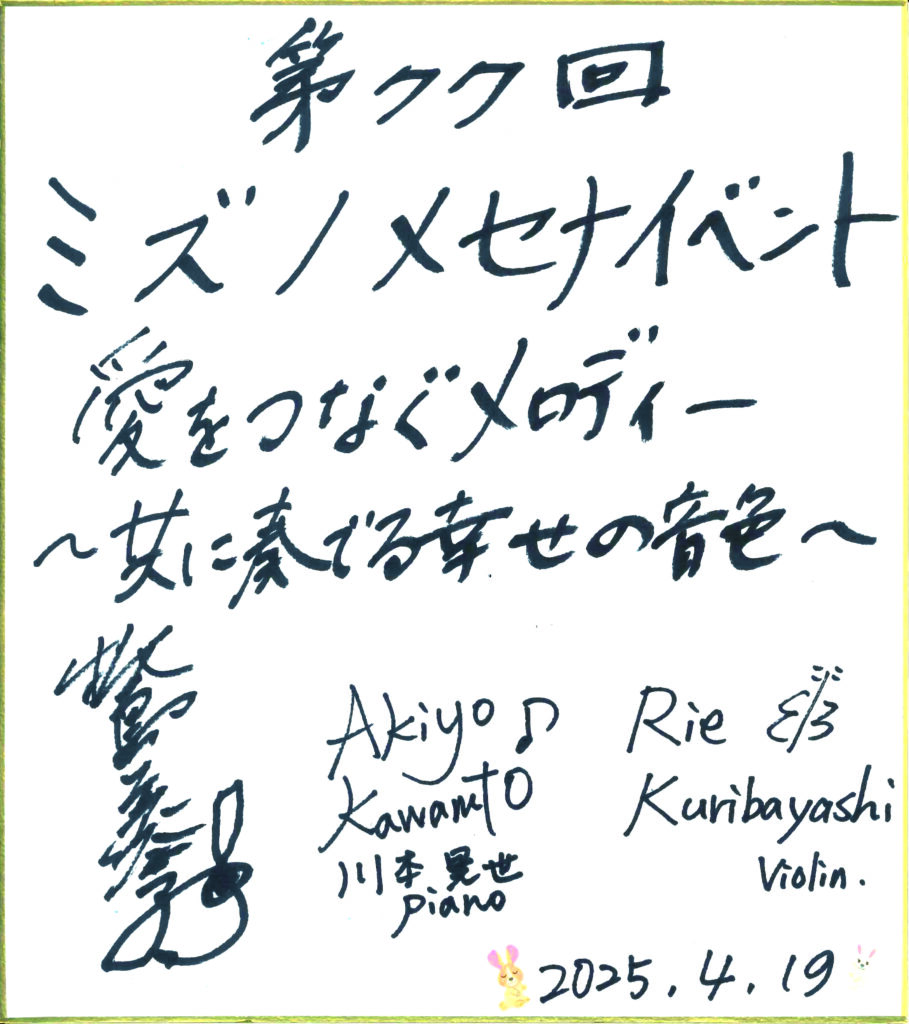 第77回
ミズノメセナイベント
愛をつなぐメロディー
～共に奏でる幸せの音色～
Akiyo♪
Kawamoto
川本晃世
piano
Rie
Kuribayashi
Violin.
2025.4.19